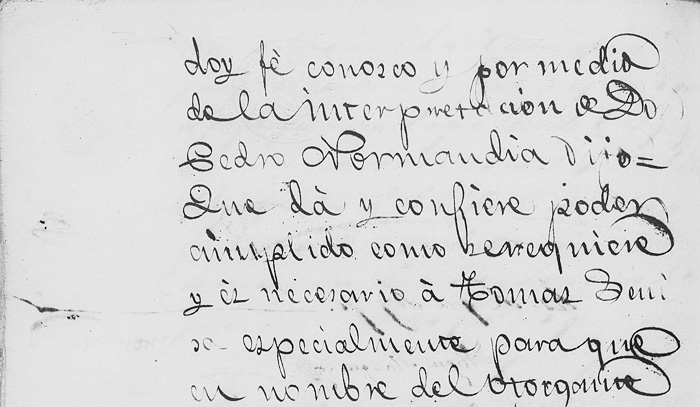 doy fè conosco y por media
de la interpretacion de Dn
Pedro Normandia Dijo=
Que dà y confiere poder
cumplido como serequiere
y ès necesario à Tomas
especialmente para que
en nombre del Otorgante